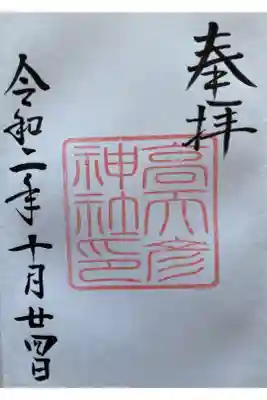 奉拝
高天彦
神社印
令和二年十月廿四日